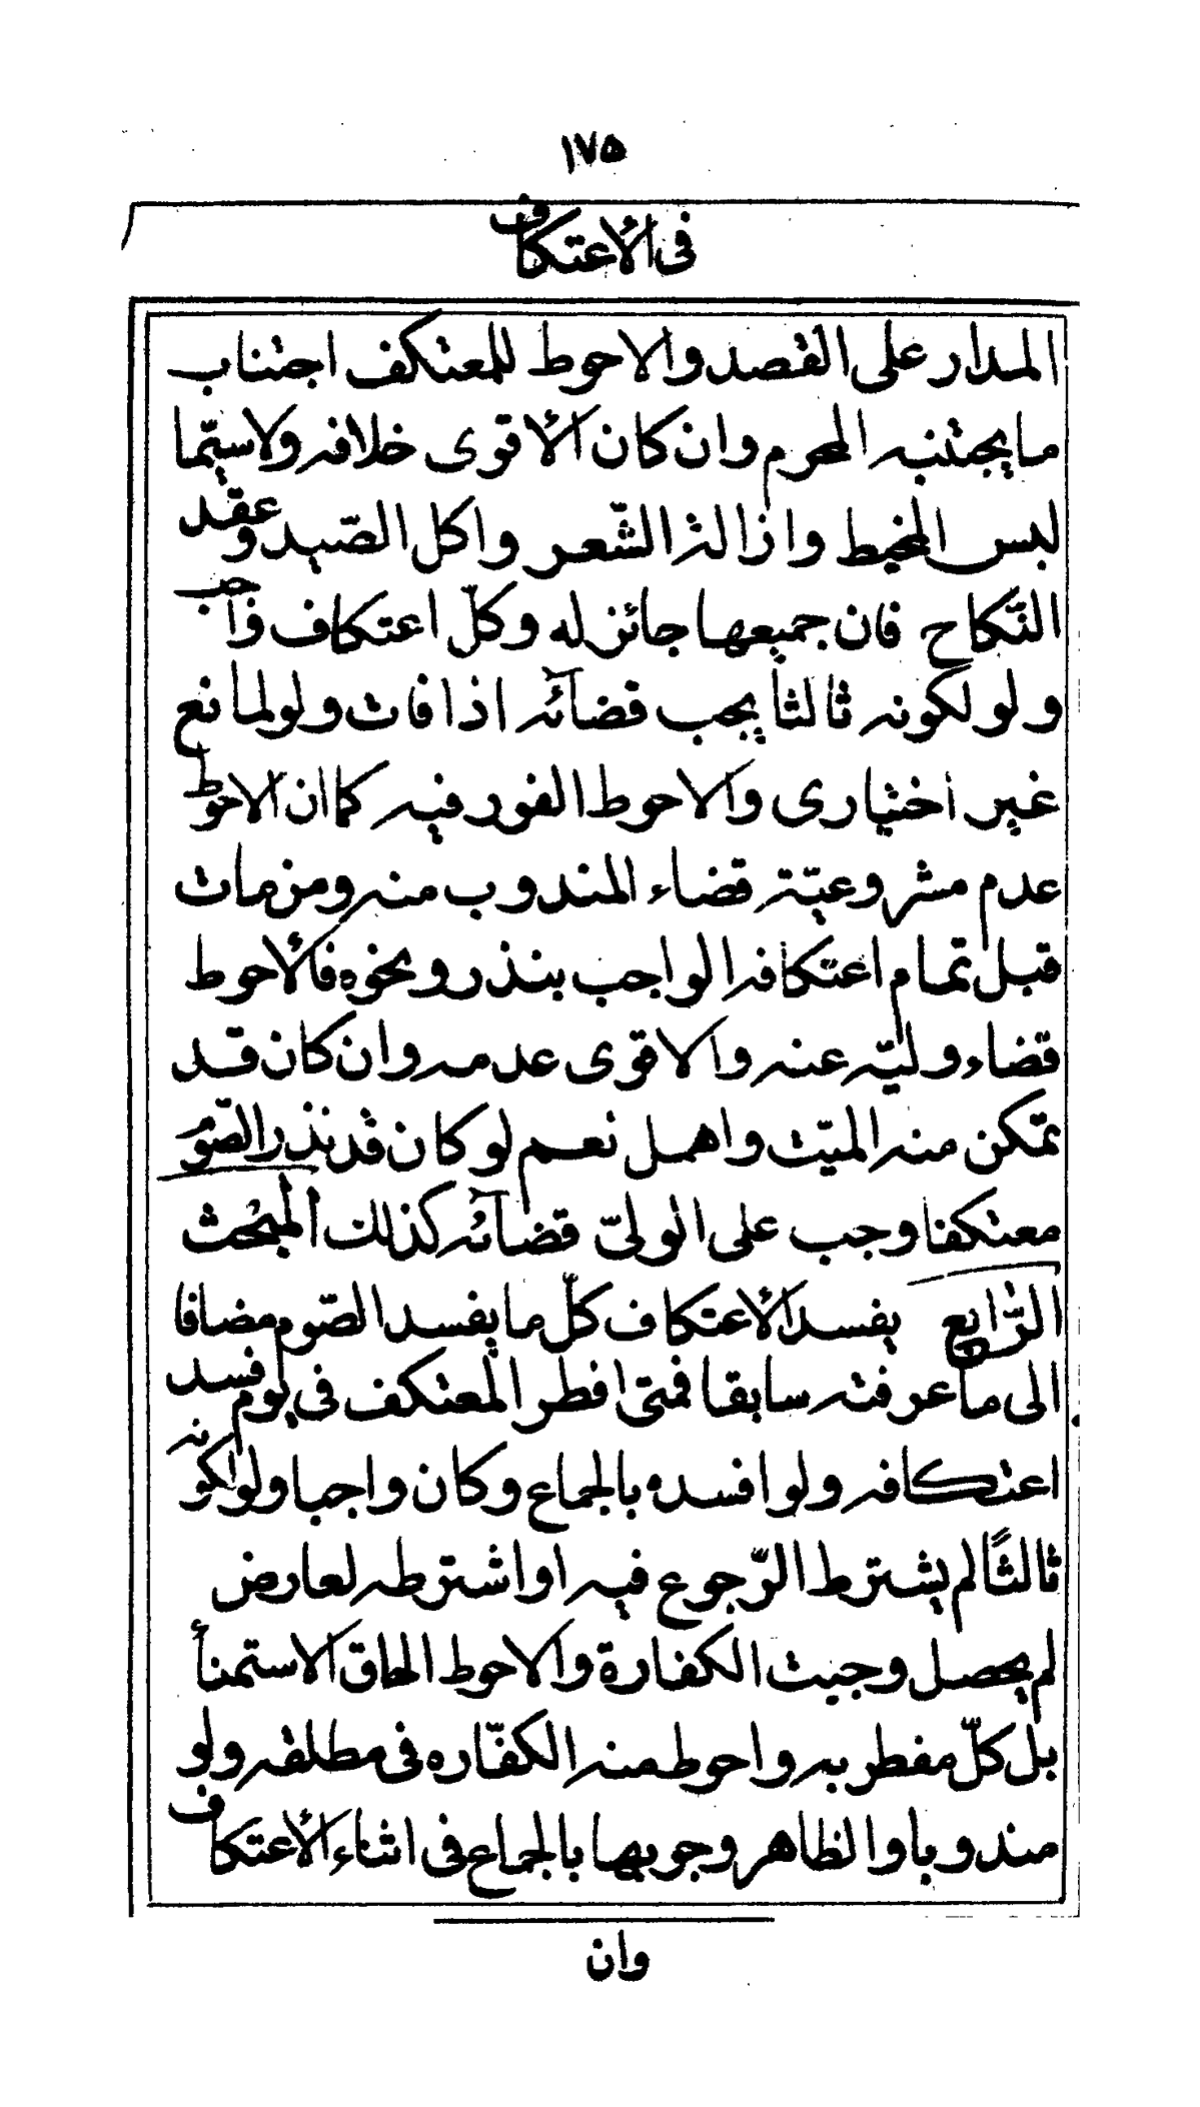 ١٧٥
فى الأعتكاف
المدار على القصد والاحوط للمعتكف اجتناب
ما يجتنبه المحرم وان كان الأقوى خلافه ولاسيّما
لبس المخيط وازالة الشّعر واكل الصّيد وعقد
النّكاح فان جميعها جائز له وكلّ اعتكاف واجب
ولو لكونه ثالثا يجب قضآئه اذا فات ولو لمانع
غير اختيارى والاحوط الفور فيه كما ان الاحوط
عدم مشروعيّة قضاء المندوب منه ومن مات
قبل تمام اعتكافه الواجب بنذر ونحوه فالأحوط
قضاء وليّه عنه والاقوى عدمه وان كان قد
تمكن منه الميّت واهمل نعم لو كان قد نذر الصّوم
معتكفا وجب على الولىّ قضآئه كذلك المبحث
الرّابع يفسد الأعتكاف كلّ ما يفسد الصّوم مضافا
الى ما عرفته سابقا فمتى افطر المعتكف فى يوم فسد
اعتكافه ولو افسده بالجماع وكان واجبا ولو لكونه
ثالثًا لم يشترط الرّجوع فيه او اشترطه لعارض
لم يحصل وجبت الكفارة والاحوط الحاق الاستمناء
بل كلّ مفطر به واحوط منه الكفّاره فى مطلقه ولو
مندوبا والظاهر وجوبها بالجماع فى اثناء الأعتكاف
وان